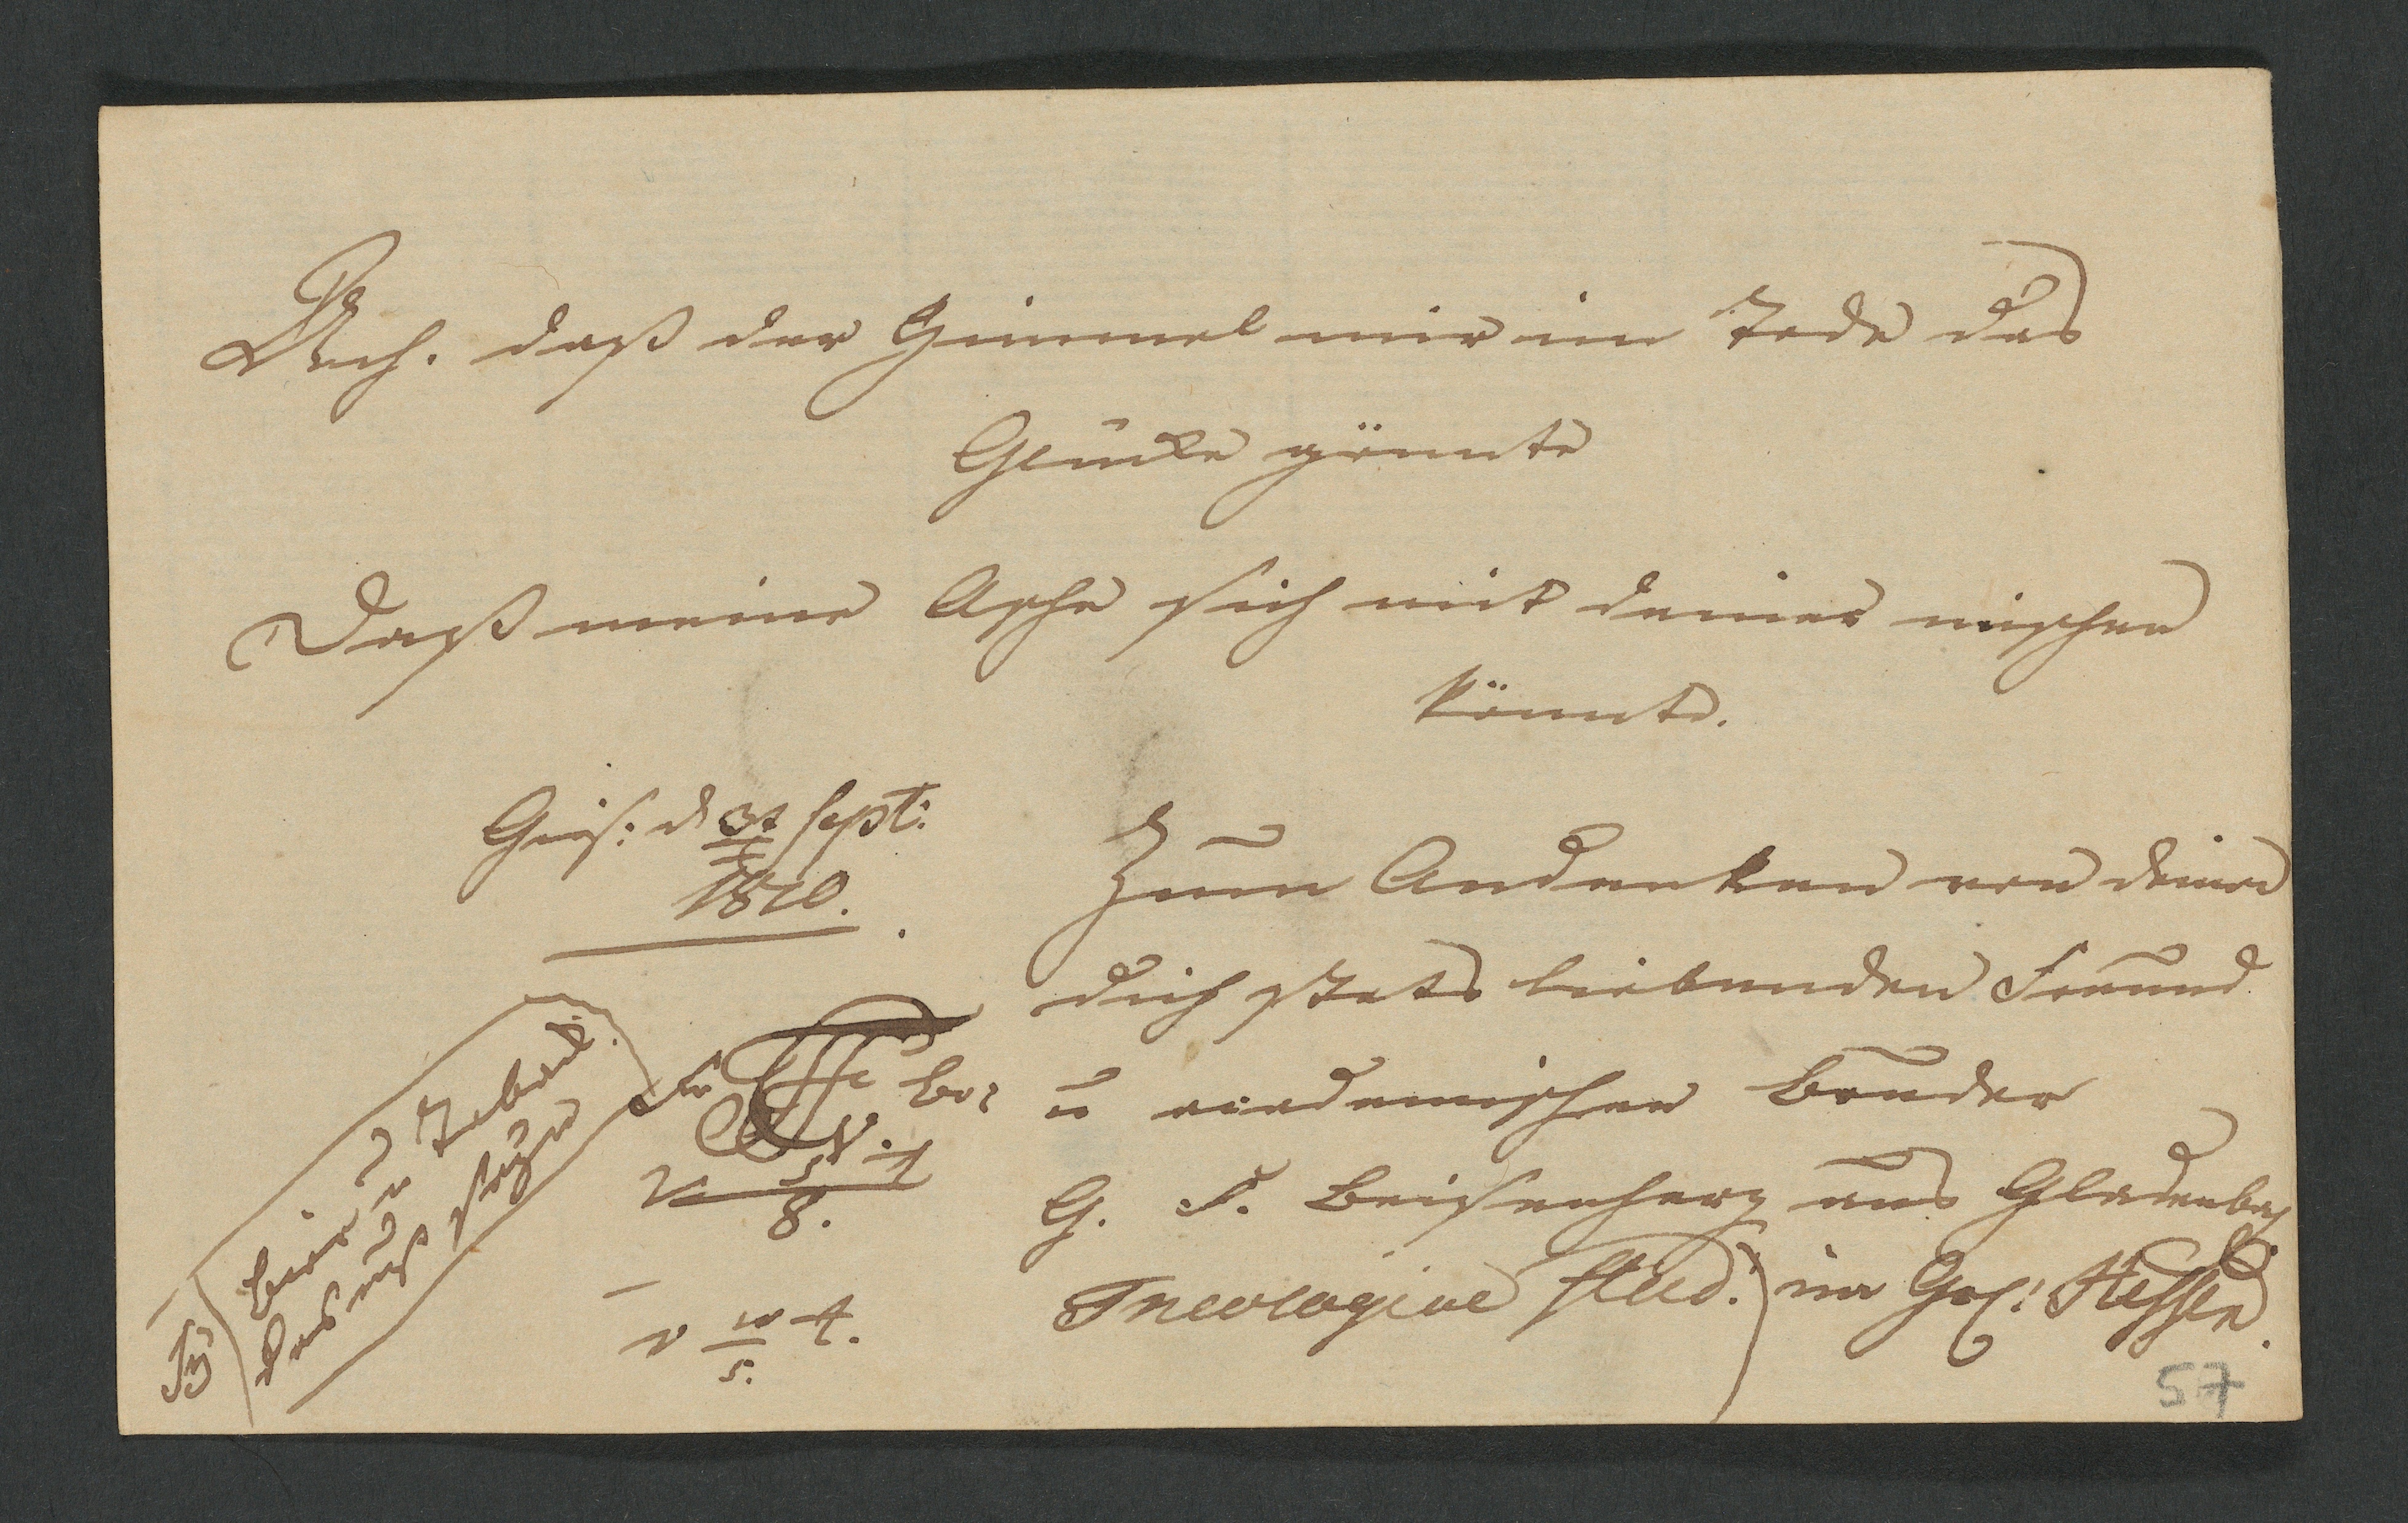 Ach. daß der Himmel mir im Tode das
Glücke gönnte
Daß meine Asche sich mit deiner mischen
könnte.
Gies: d 3t Sept:
1810.
Zum Andenken von deinen
dich stets liebenden Freund
u academischen Bruder
G. F. Beisenherz aus Gladenbach
Theologiae Stud: im Grs: Hessen.
Bier u Toback
das muß
V.
8.
v 10 t.
5.
57